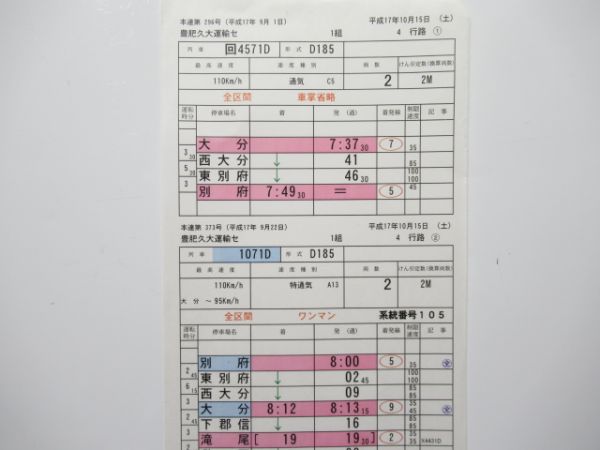 本達第 296号 (平成17年 9月 1日) 平成17年10月15日 (土)
豊肥久大運輸セ 1組 4 行路 ①
列車 回4571D 形式 D185
最高速度 速度種別 両数 けん引定数(換算両数)
110Km/h 通気 C5 2 2M
全区間 車掌省略
運転時分 停車場名 着 発 (通) 着発線 制限速度 記事
大分 7:37 30 7 35
3 30 西大分 ↓ 41 85
5 30 東別府 ↓ 46 30 60
3 別府 7:49 30 = 5 45
本達第 373号 (平成17年 9月22日) 平成17年10月15日 (土)
豊肥久大運輸セ 1組 4 行路 ②
列車 1071D 形式 D185
最高速度 速度種別 両数 けん引定数(換算両数)
110Km/h 特通気 A13 2 2M
大分 ~95Km/h
全区間 ワンマン 系統番号105
運転時分 停車場名 着 発 (通) 着発線 制限速度 記事
別府 8:00 5 35
2 45 東別府 ↓ 02 45 100
6 15 西大分 ↓ 09 85
3 大分 8:12 8:13 15 9 35
2 45 下郡信 ↓ 16 85
3 滝尾 [ 19 19 30 ] 2 35 ｷ4431D